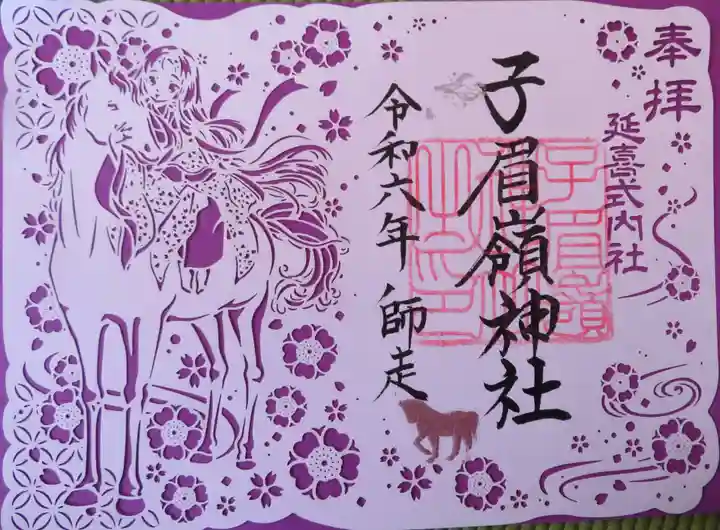 奉拝
延喜式内社
子眉嶺神社
令和六年師走